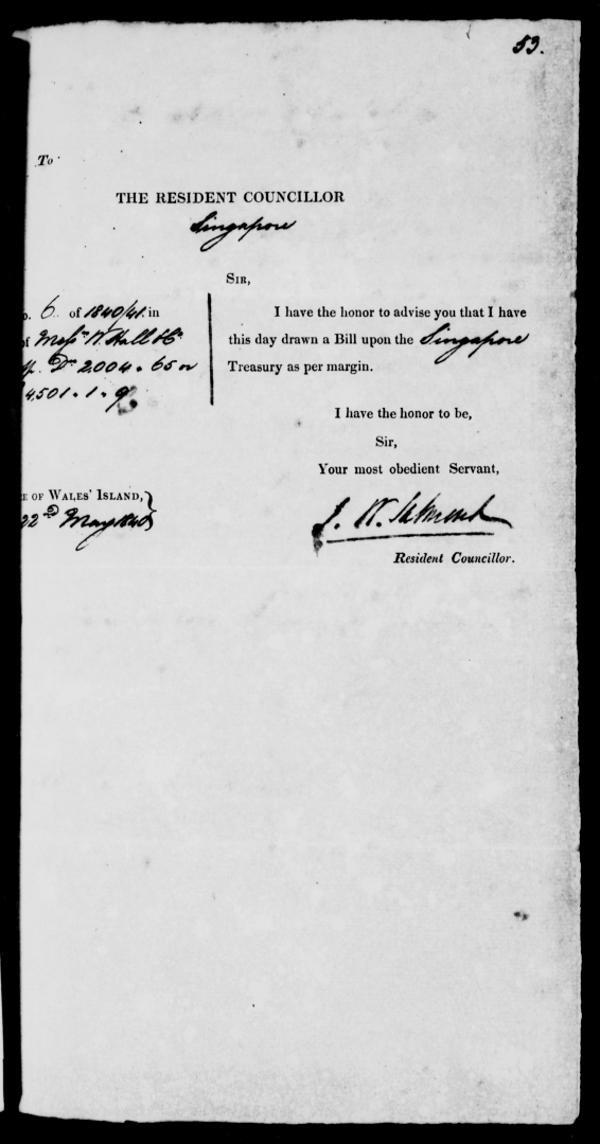 53.
To
THE RESIDENT COUNCILLOR
Singapore
SIR,
6 of 1840/41 in
Messrs
Hall & Co
Drs 2004 . 65 or
4,501 . 1 . 9
I have the honor to advise you that I have
this day drawn a Bill upon the Singapore
Treasury as per margin.
I have the honor to be,
Sir,
Your most obedient Servant,
OF WALES' ISLAND,
22nd May 1840
Resident Councillor.